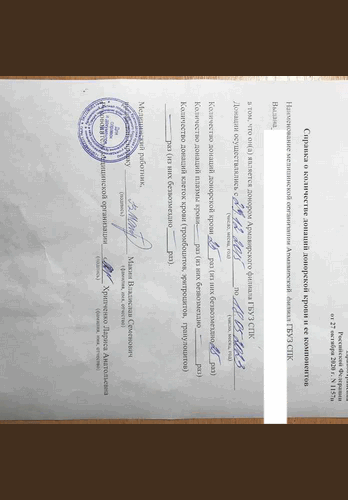 Российской Федерации
от 27 октября 2020 г. N 1157н
Справка о количестве донаций донорской крови и ее компонентов
Наименование медицинской организации Армавирский филиал ГБУЗ СПК
Выдана:
в том, что он(а) является донором Армавирского филиала ГБУЗ СПК
Донации осуществлялись с по
(число, месяц, год) (число, месяц, год)
Количество донаций донорской крови раз (из них безвозмездно раз)
Количество донаций плазмы крови раз (из них безвозмездно раз)
Количество донаций клеток крови (тромбоцитов, эритроцитов, гранулоцитов)
раз (из них безвозмездно раз).
Медицинский работник,
Макян Владислав Семенович
(подпись) (фамилия, имя, отчество)
медицинской организации Хрипченко Лариса Анатольевна
(подпись) (фамилия, имя, отчество)
Для справок